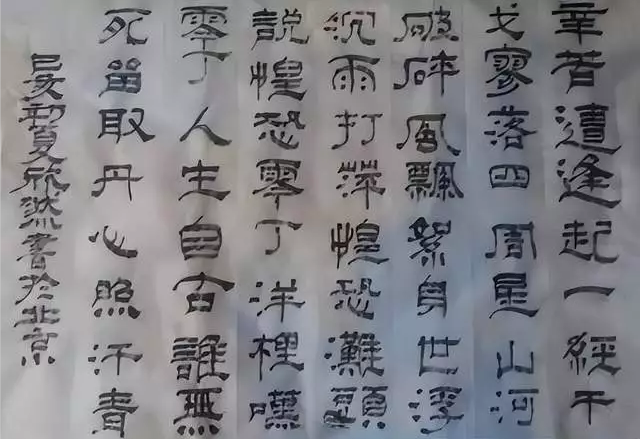 辛苦遭逢起一經干
戈寥落四周星山河
破碎風飄絮身世浮
沉雨打萍惶恐灘頭
説惶恐零丁洋裡嘆
零丁人生自古誰無
死留取丹心照汗青
己亥初夏欣然書於北京